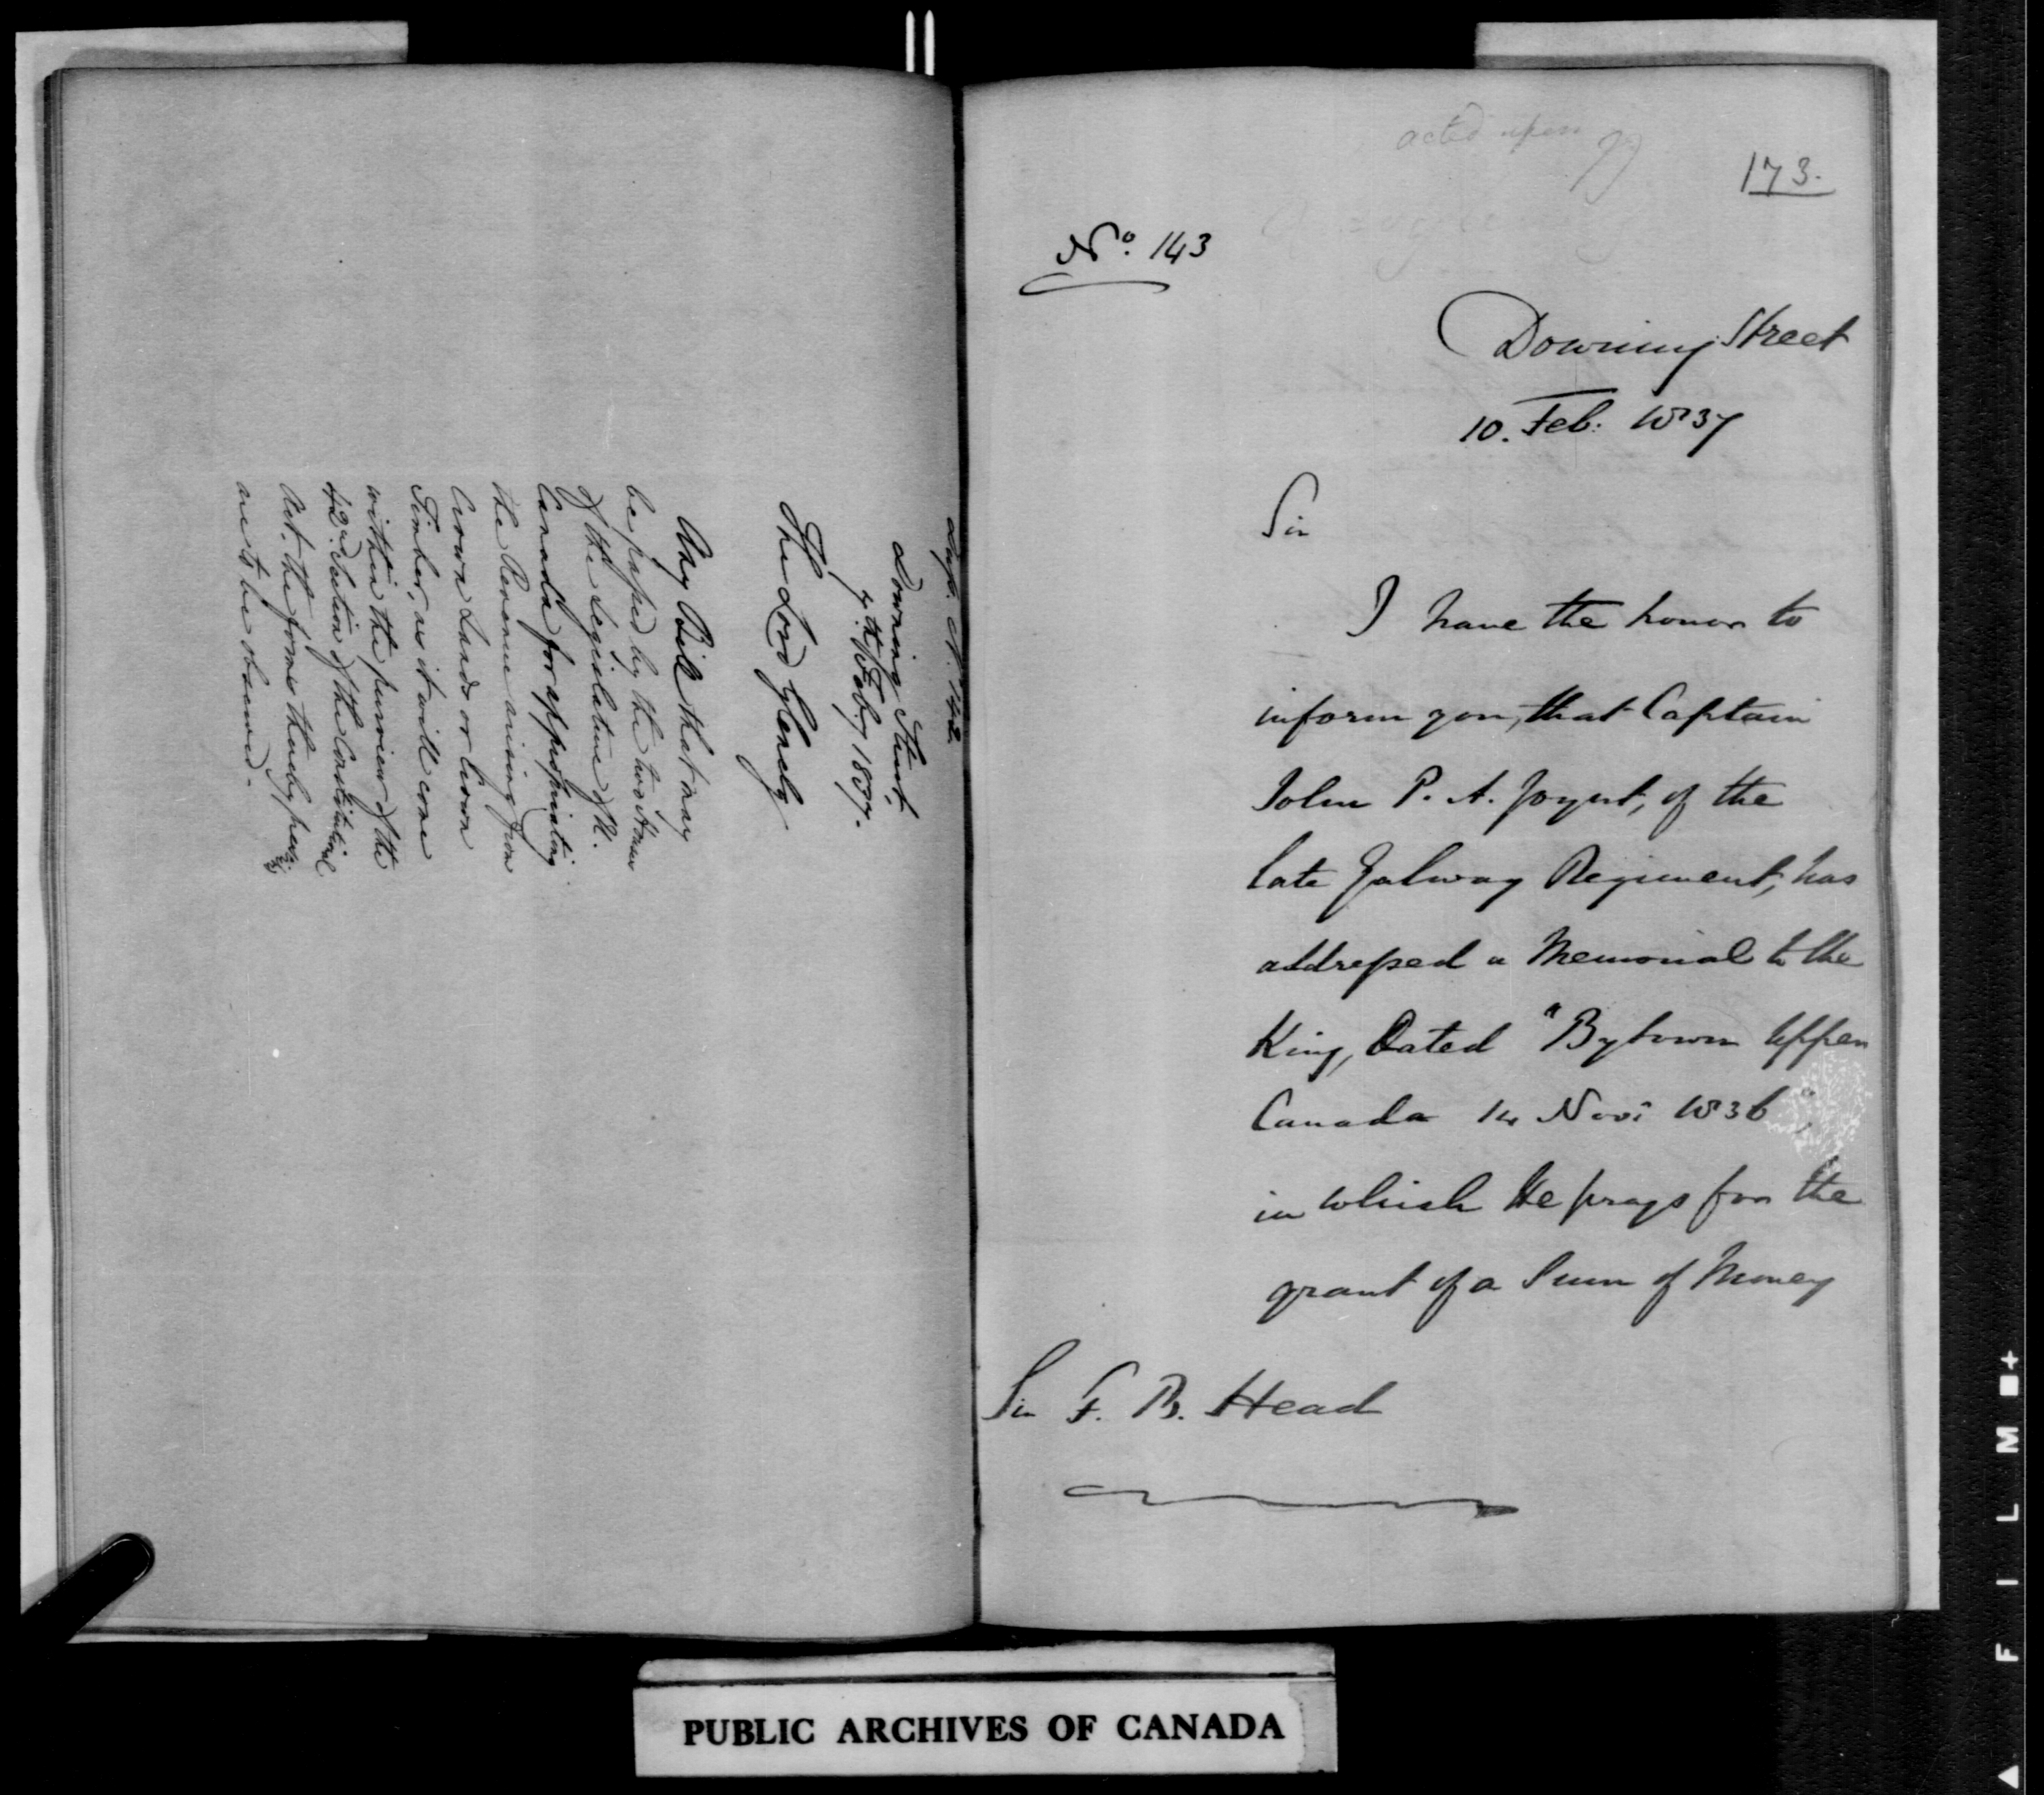 Desp. No. 142
Downing Street,
7th Feby 1837.
The Lord Glenelg
Any Bill that may
be passed by the two Houses
of the Legislature of U.
Canada for appropriating
the Revenue arising from
Crown Lands or Crown
Timber, as it will come
within the purview of the
42nd Section of the Constitutional
Act. the forms thereby
are to be observed.
acted upon
173.
No. 143
Downing Street
10. Feb: 1837
Sir
I have the honor to
inform you, that Captain
John P. A. Joynt, of the
late Galway Regiment, has
addressed a Memorial to the
King, Dated "Bytown Upper
Canada 14 Nov: 1836"
in which He prays for the
grant of a Sum of Money
Sir F. B. Head
PUBLIC ARCHIVES OF CANADA
FILM